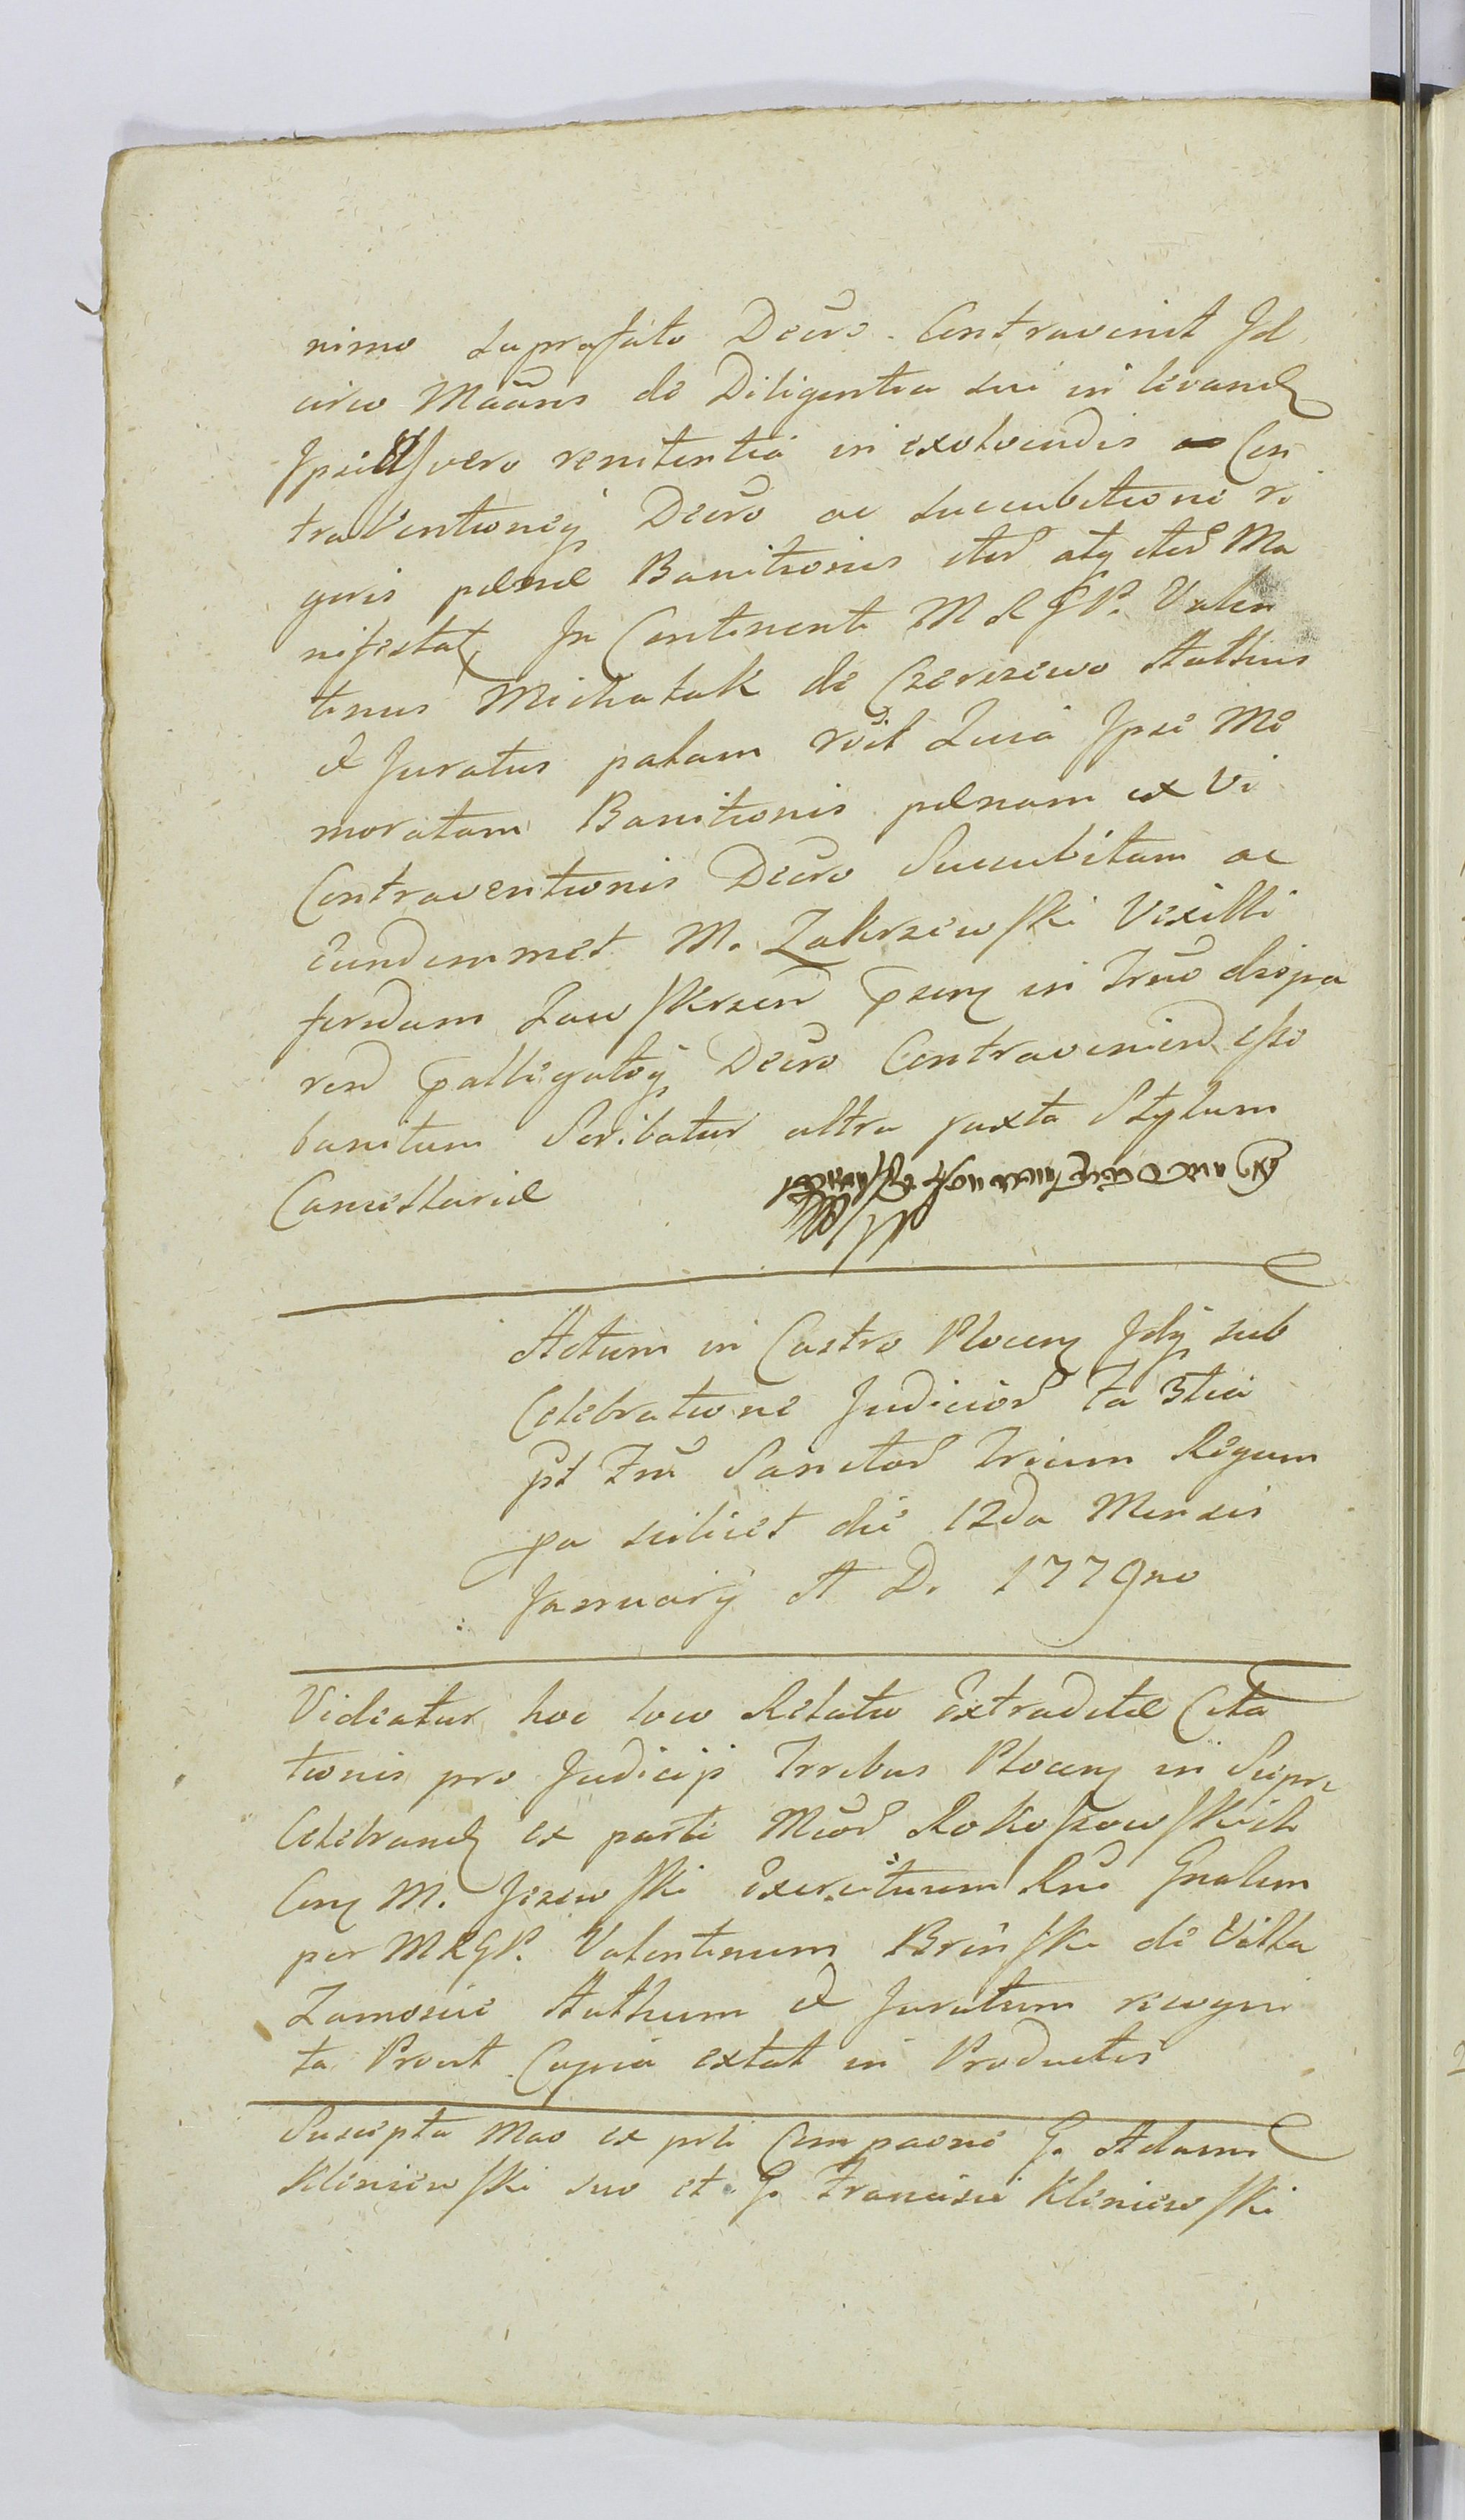 nimo suprafato Decro. Contravenit Id
circo Maans de Diligentia sui in levand
Ipsius vero renitentia in exolvendis Con
traventioneq Decro ac succubitione ri
goris pænæ Banitionis iter atq iter Ma
nifestat, In Continenti M R G P. Valen
tinus Michalak de Czerszewo Authus
et Juratus palam rcit Quia Ipse Me
moratam Banitionis pænam ex Vi
Contraventionis Decro Succubitam ac
eundemmet M. Zakrzewski Vexilli
ferdum Zawskrzen in Trno dispa
ren Decro Contravenien esse
banitum Scribatur ultra juxta Stylum
Cancellariæ
Actum in Castro Plocen Idq sub
Celebratione Judicior fa 3tia
pt Fm Sanctor Trium Regum
pa scilicet die 12da Mensis
January A D. 1779no
Videatur hoc loco Relatio Extraditæ Cita
tionis pro Judicijs Trribus Plocen in Sierpc
Celebrand ex parte Mcor Rokoszowskich
Con M. Jezewski Exercituum Rni Gnalem
per MRGP. Valentinum Brinski de Villa
Zamoscie Authum et Juratum recogni
ta Prout Copia extat in Productis
Suscepta Mao ex pte Compaone G. Adami
Kliniewski suo et G. Francisci Kliniewski